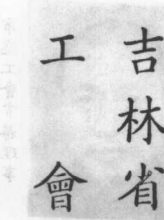 吉林省
工會